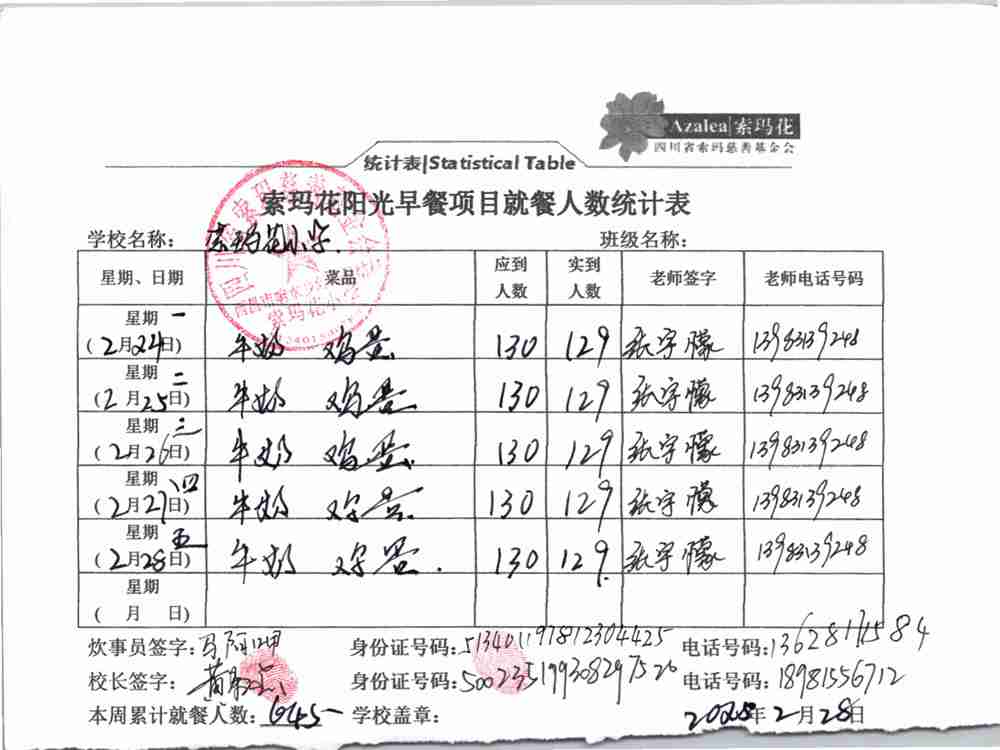 Azalea|索玛花
四川省索玛慈善基金会
统计表|Statistical Table
索玛花阳光早餐项目就餐人数统计表
学校名称: 索玛花小学 班级名称:
星期、日期 菜品 应到人数 实到人数 老师签字 老师电话号码
星期一 (2月24日) 牛奶 鸡蛋 130 129 张宇檬 13983139248
星期二 (2月25日) 牛奶 鸡蛋 130 129 张宇檬 13983139248
星期三 (2月26日) 牛奶 鸡蛋 130 129 张宇檬 13983139248
星期四 (2月27日) 牛奶 鸡蛋 130 129 张宇檬 13983139248
星期五 (2月28日) 牛奶 鸡蛋. 130 129 张宇檬 13983139248
星期 ( 月 日)
炊事员签字: 身份证号码: 电话号码:
校长签字: 身份证号码: 电话号码:18981556712
本周累计就餐人数: 645 学校盖章: 2025年2月28日